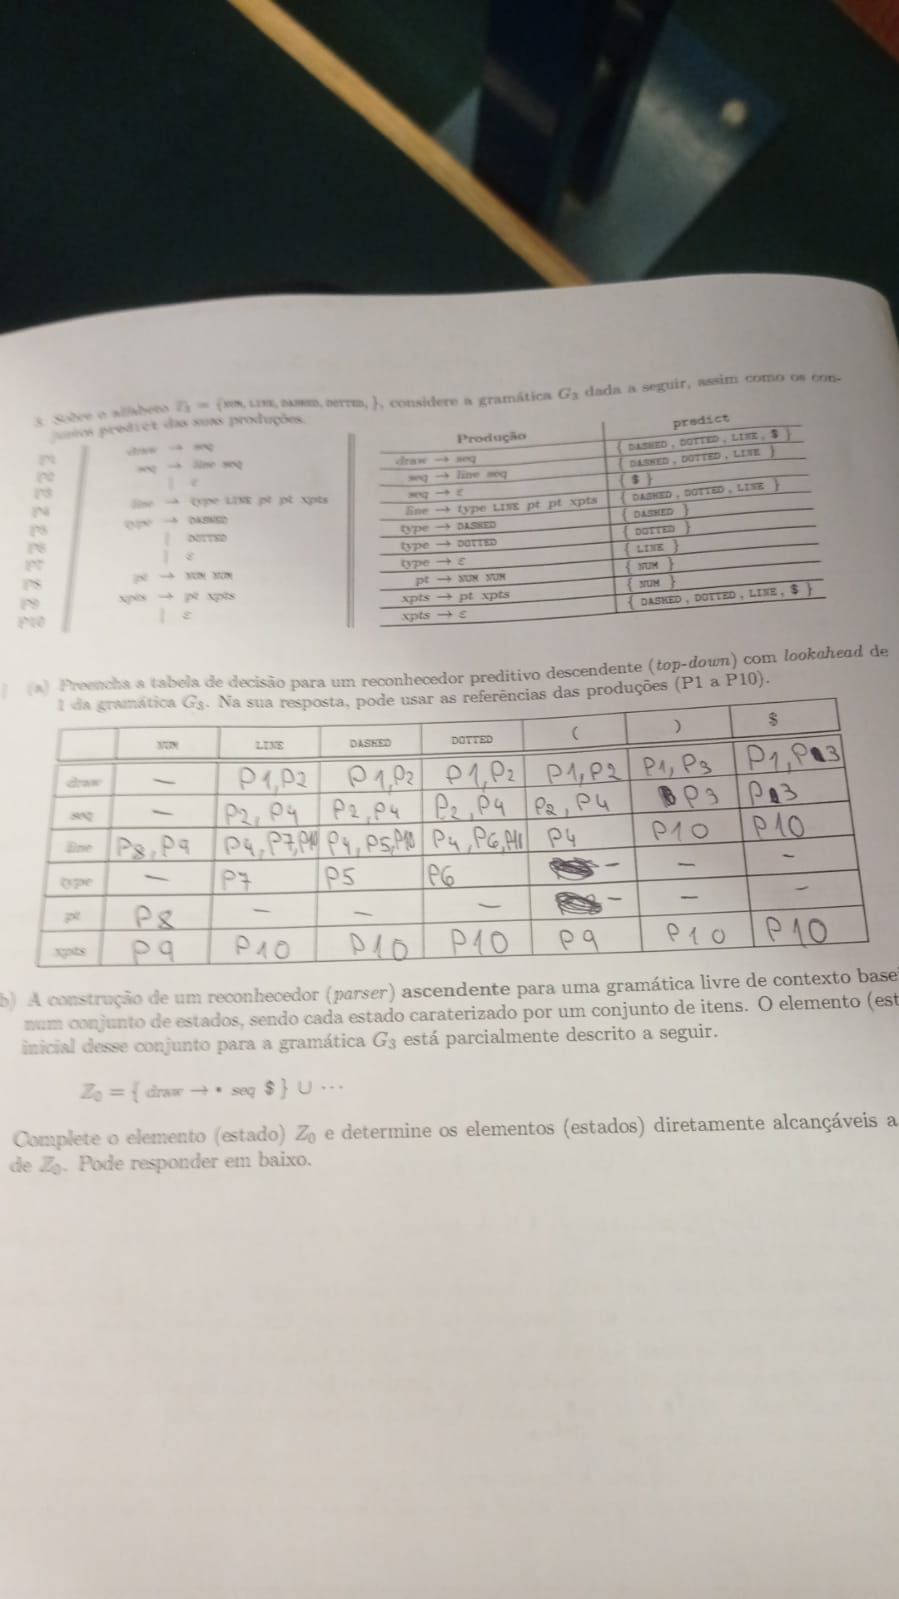 3. Sobre o alfabeto T₃ = {NUM, LINE, DASHED, DOTTED, }, considere a gramática G₃ dada a seguir, assim como os con-
juntos predict das suas produções.
P1 draw → seq
P2 seq → line seq
P3 | ε
P4 line → type LINE pt pt xpts
P5 type → DASHED
P6 | DOTTED
P7 | ε
P8 pt → NUM NUM
P9 xpts → pt xpts
P10 | ε
Produção predict
draw → seq { DASHED , DOTTED , LINE , $ }
seq → line seq { DASHED , DOTTED , LINE }
seq → ε { $ }
line → type LINE pt pt xpts { DASHED , DOTTED , LINE }
type → DASHED { DASHED }
type → DOTTED { DOTTED }
type → ε { LINE }
pt → NUM NUM { NUM }
xpts → pt xpts { NUM }
xpts → ε { DASHED , DOTTED , LINE , $ }
(a) Preencha a tabela de decisão para um reconhecedor preditivo descendente (top-down) com lookahead de
1 da gramática G₃. Na sua resposta, pode usar as referências das produções (P1 a P10).
NUM LINE DASHED DOTTED ( ) $
draw — P1,P2 P1,P2 P1,P2 P1,P2 P1,P3 P1,P3
seq — P2,P4 P2,P4 P2,P4 P2,P4 P3 P3
line P8,P9 P4,P7,P10 P4,P5,P10 P4,P6, P4 P10 P10
type — P7 P5 P6 – – –
pt P8 — — — – – –
xpts P9 P10 P10 P10 P9 P10 P10
b) A construção de um reconhecedor (parser) ascendente para uma gramática livre de contexto base
num conjunto de estados, sendo cada estado caraterizado por um conjunto de itens. O elemento (est
inicial desse conjunto para a gramática G₃ está parcialmente descrito a seguir.
Z₀ = { draw → • seq $ } ∪ ···
Complete o elemento (estado) Z₀ e determine os elementos (estados) diretamente alcançáveis a
de Z₀. Pode responder em baixo.